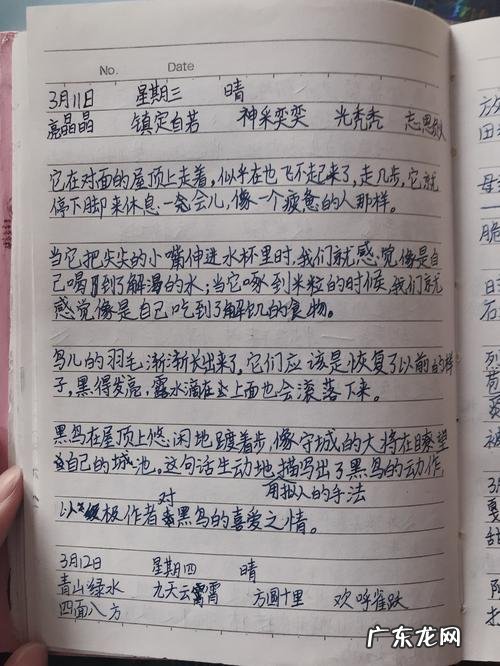 No. Date
3月11日 星期三 晴
亮晶晶 镇定自若 神采奕奕 光秃秃
它在对面的屋顶上走着，似乎在也飞不起来了，走几步，它就
停下脚来休息一会儿，像一个疲惫的人那样。
当它把尖尖的小嘴伸进水杯里时，我们就感觉像是自
己喝到了解渴的水；当它啄到米粒的时候，我们就
感觉像是自己吃到了解饥的食物。
鸟儿的羽毛渐渐长出来了，它们应该是恢复了以前的样
子，黑得发亮，露水滴在上面也会滚落下来。
黑鸟在屋顶上悠闲地踱着步，像守城的大将在瞭望
自己的城池。这句话生动地描写出了黑鸟的动作
用拟人的手法
对
以及极作者黑鸟的喜爱之情。
3月12日 星期四 晴
青山绿水 九天云霄 方圆十里 欢呼雀跃
四面八方
放
田
母
脆
日
石
烈
被
3月
甜
广东龙网